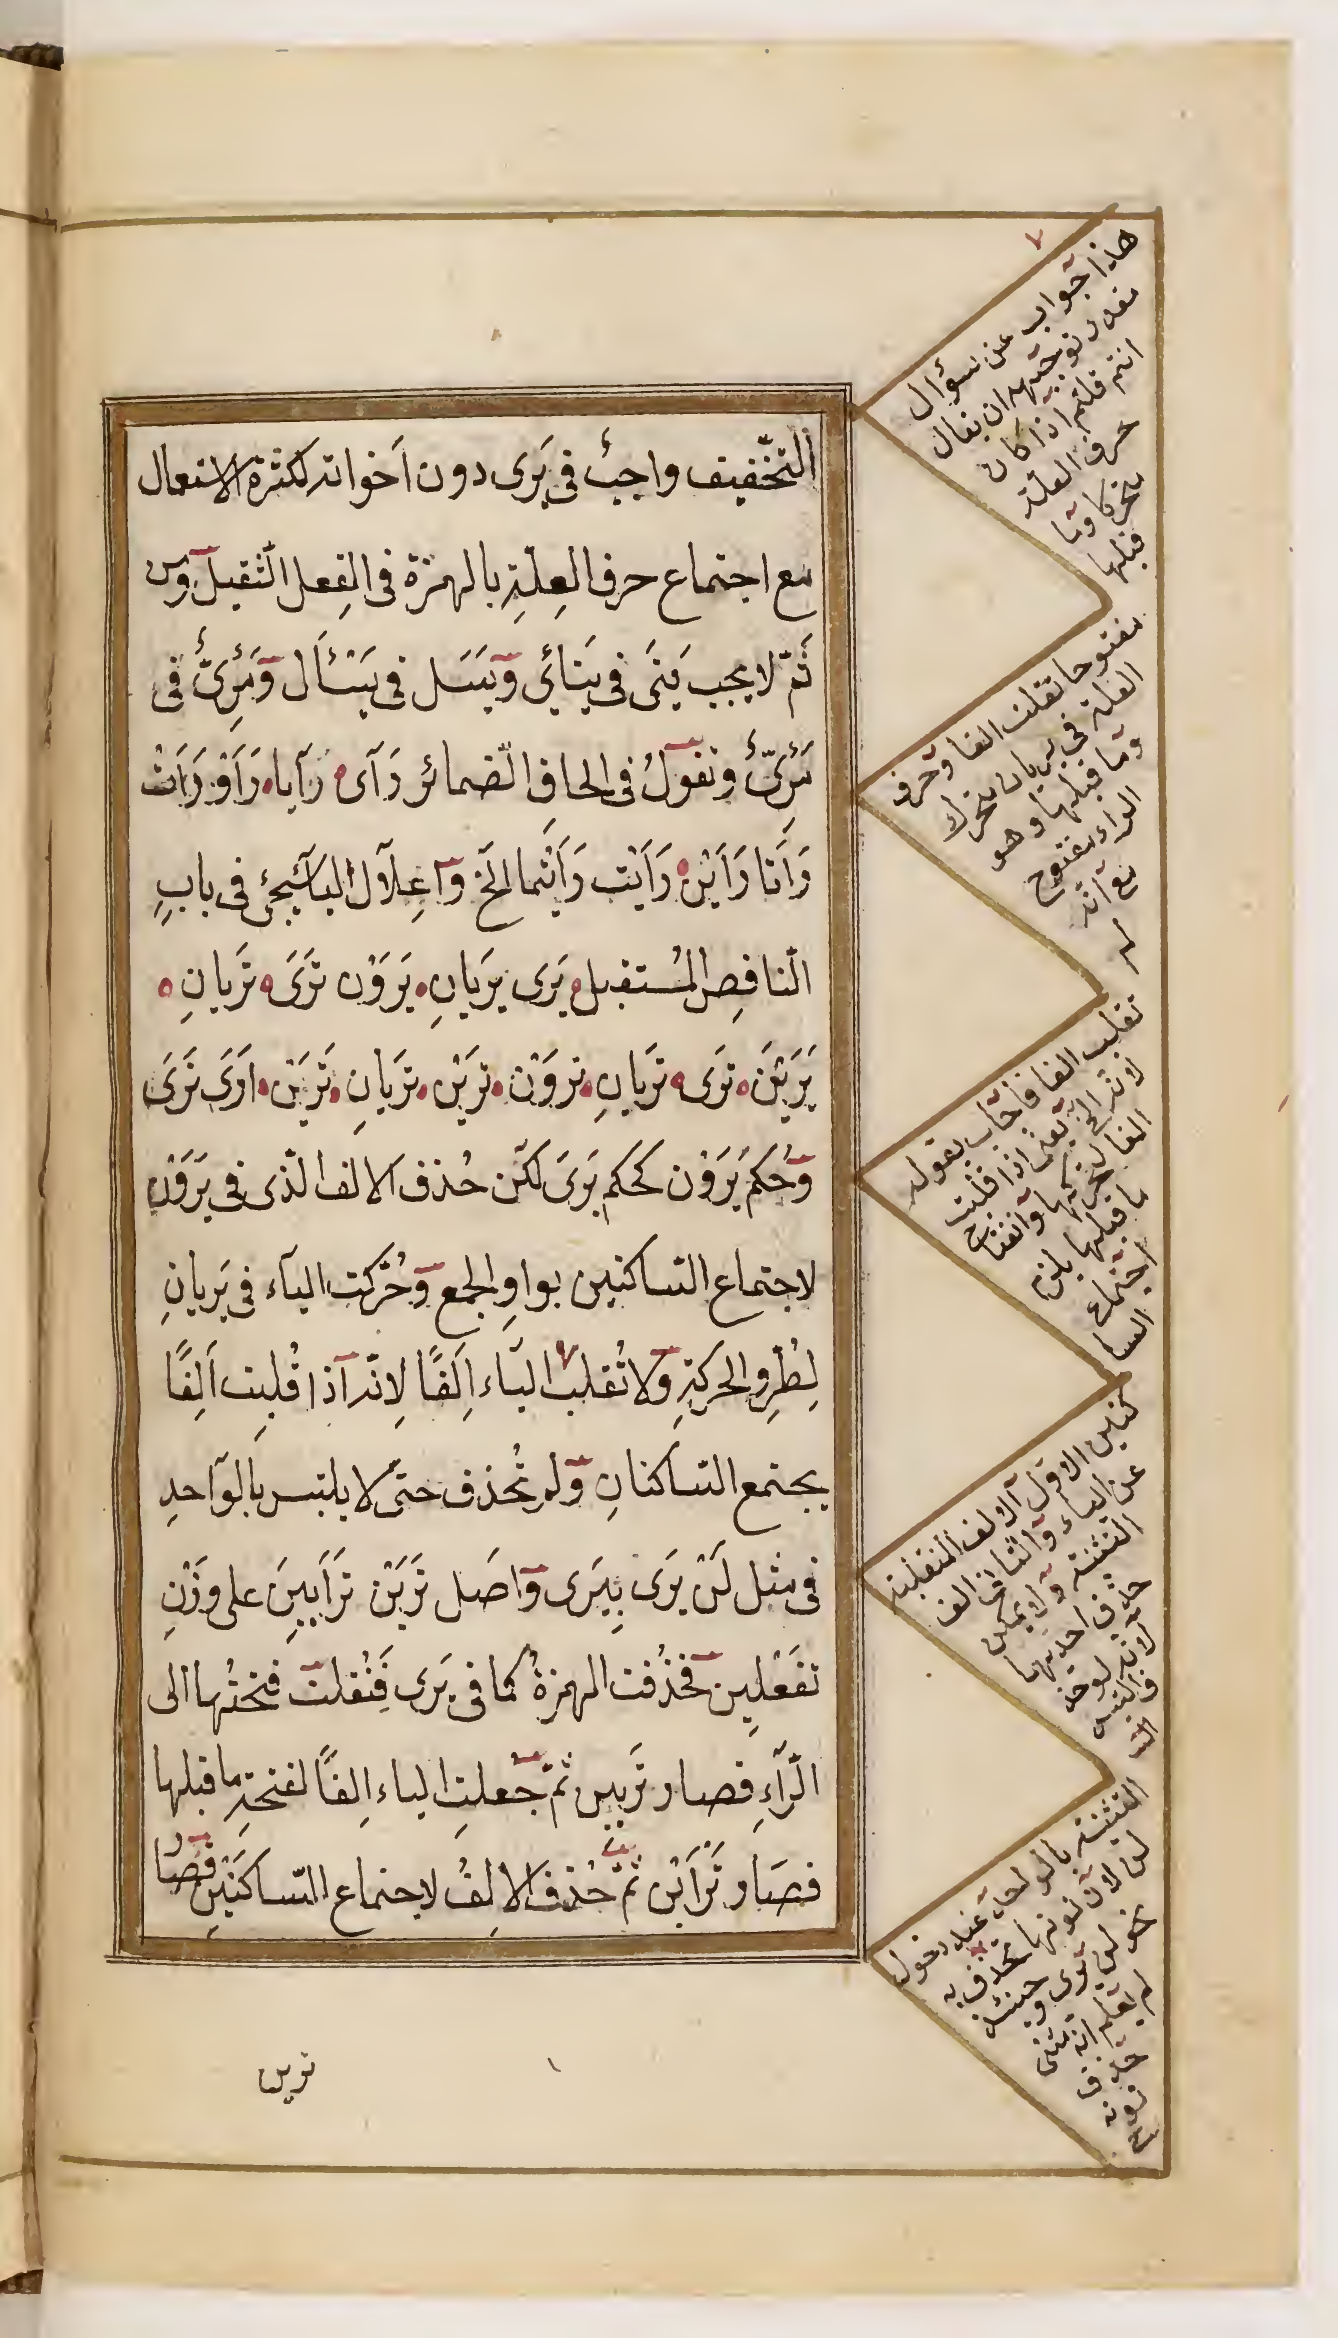 التخفيف واجب فى يَرى دون اَخواته لكثرة الاستعمال
مع اجتماع حرف العِلّةِ بالهمزة فى الفِعل الثّقيل وَمن
ثَمّ لا يجب يَنَى فى يَنأَي وَيَسَل فى يَسْأَل وَمَرِىٌّ فى
مَرْئِىٌّ وتقولُ فى الحاق الضمائر رَآى رَآيا رَاَوْ رَاَتْ
رَاَتا رَاَيْن رَاَيْت رَاَيْتما الَخ وَاعِلآل الياء سيجئ فى بابِ
النّاقِصِ المُستقبل يَرَى يَرَيانِ يَرَوْن تَرَى تَرَيانِ
يَرَيْنَ تَرَى تَرَيانِ تَرَوْن تَرَيْن تَرَيانِ تَرَيْن اَرَى نَرَى
وَحُكمُ يَرَوْن كحكم يَرَى لكن حُذف الالف الّذى فى يَرَوْن
لاجتماع السّاكنين بواوِ الجمع وَحُرّكت اليآء فى يَرَيانِ
لِطُرُوِ الحركةِ وَلا تُقلب اليآء اَلِفًا لِانّه اذا قُلِبت اَلِفًا
يجتمع السّاكنانِ وَلم تُحذف حتّى لا يلتبس بالوَاحدِ
فى مثل لَنْ يَرَى بِيَرى وَاصَل تَرَيْن تَرْاَيِينَ على وَزْنِ
تَفْعَلِين فحُذفت الهمزةُ كما فى يَرَى فَنُقلتَ فتحتُها الى
الرّآءِ فصار تَرَيِين ثمّ جُعلتِ الياء اَلِفًا لفتحةِ ما قبلها
فصَار تَرَايْن ثمّ حُذف الالِفُ لاجتماع السّاكنَيْنِ فصَار
ترين
هذا جواب عن سؤال
مقدر توجيهه ان يقال
انتم قلتم اذا كان
حرف العلة
متحركا وما
قبلها
مفتوحا تقلب الفا وحرف
العلة فى يريان متحرك
وما قبلها وهو
الراء مفتوح
مع انه
لم
تقلب الفا فاجاب بقوله
لانه الخ يعنى اذا قلبت
الفا لتحركها وانفتاح
ما قبلها يلزم
اجتماع
السا
كنين الاول الالف المنقلبة
عن الياء والثانى الف
التثنية ولا يمكن
حذف احديهما
لانه لو حذ
ف التبس
التثنية بالواحد عند دخول
لن لان نونها تحذف به
نحو لن يرى وحينئذ
لم يعلم انه مثنى
حذف
نونه